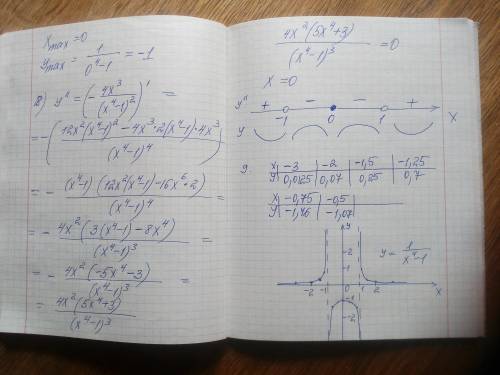 x max = 0
y max = 1/(0⁴-1) = -1
8) y'' = (- 4x³/(x⁴-1)²)' =
= -( (12x²(x⁴-1)² - 4x³·2(x⁴-1)·4x³)/(x⁴-1)⁴ )
= - (x⁴-1)(12x²(x⁴-1) - 16x⁶·2)/(x⁴-1)⁴ =
= - 4x²(3(x⁴-1) - 8x⁴)/(x⁴-1)³ =
= - 4x²(-5x⁴-3)/(x⁴-1)³ =
= 4x²(5x⁴+3)/(x⁴-1)³
4x²(5x⁴+3)/(x⁴-1)³ = 0
x = 0
y'' + - - +
-1 0 1 x
y
9. x -3 -2 -1,5 -1,25
y 0,0125 0,07 0,25 0,7
x -0,75 -0,5
y -1,46 -1,07
y
2
1
y = 1/(x⁴-1)
-2 -1 0 1 2 x
-1
-2